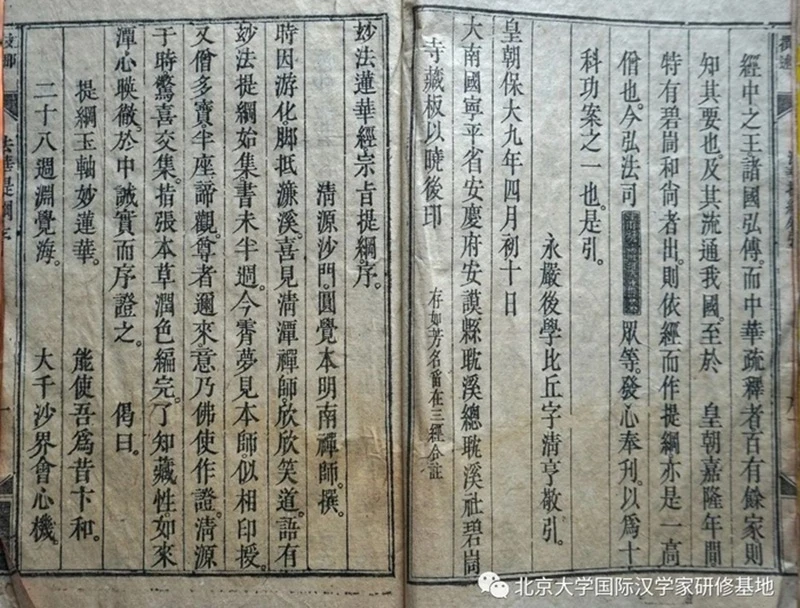 經中之王諸國弘傳。而中華疏釋者百有餘家則
知其要也。及其流通我國。至於 皇朝嘉隆年間
特有碧峝和尙者出。則依經而作提綱亦是一高
僧也。今弘法司 眾等。發心奉刋。以爲十
科功案之一也。是引。
永嚴後學比丘字清亨敬引。
皇朝保大九年四月初十日
大南國寧平省安慶府安謨縣耽溪總耽溪社碧峝
寺藏板以曉後印 存如芳名畱在三經合註
玅法蓮華經宗旨提綱。序。
清源沙門。圓覺本明南禪師。撰。
時因游化脚抵濂溪。喜見清潭禪師。欣欣笑道。語有
玅法提綱始集。書未半週。今霄夢見本師。似相印授。
又僧多寶半座諦觀。尊者邇來。意乃佛使作證。清源
于時驚喜交集。掿張本草潤色編完。了知藏性。如來
潭心暎徹。於中誠實而序證之。 偈曰。
提綱玉軸妙蓮華。 能使吾爲昔卞和。
二十八週淵覺海。 大千沙界會心機。
法華提綱序
北京大学国际汉学家研修基地